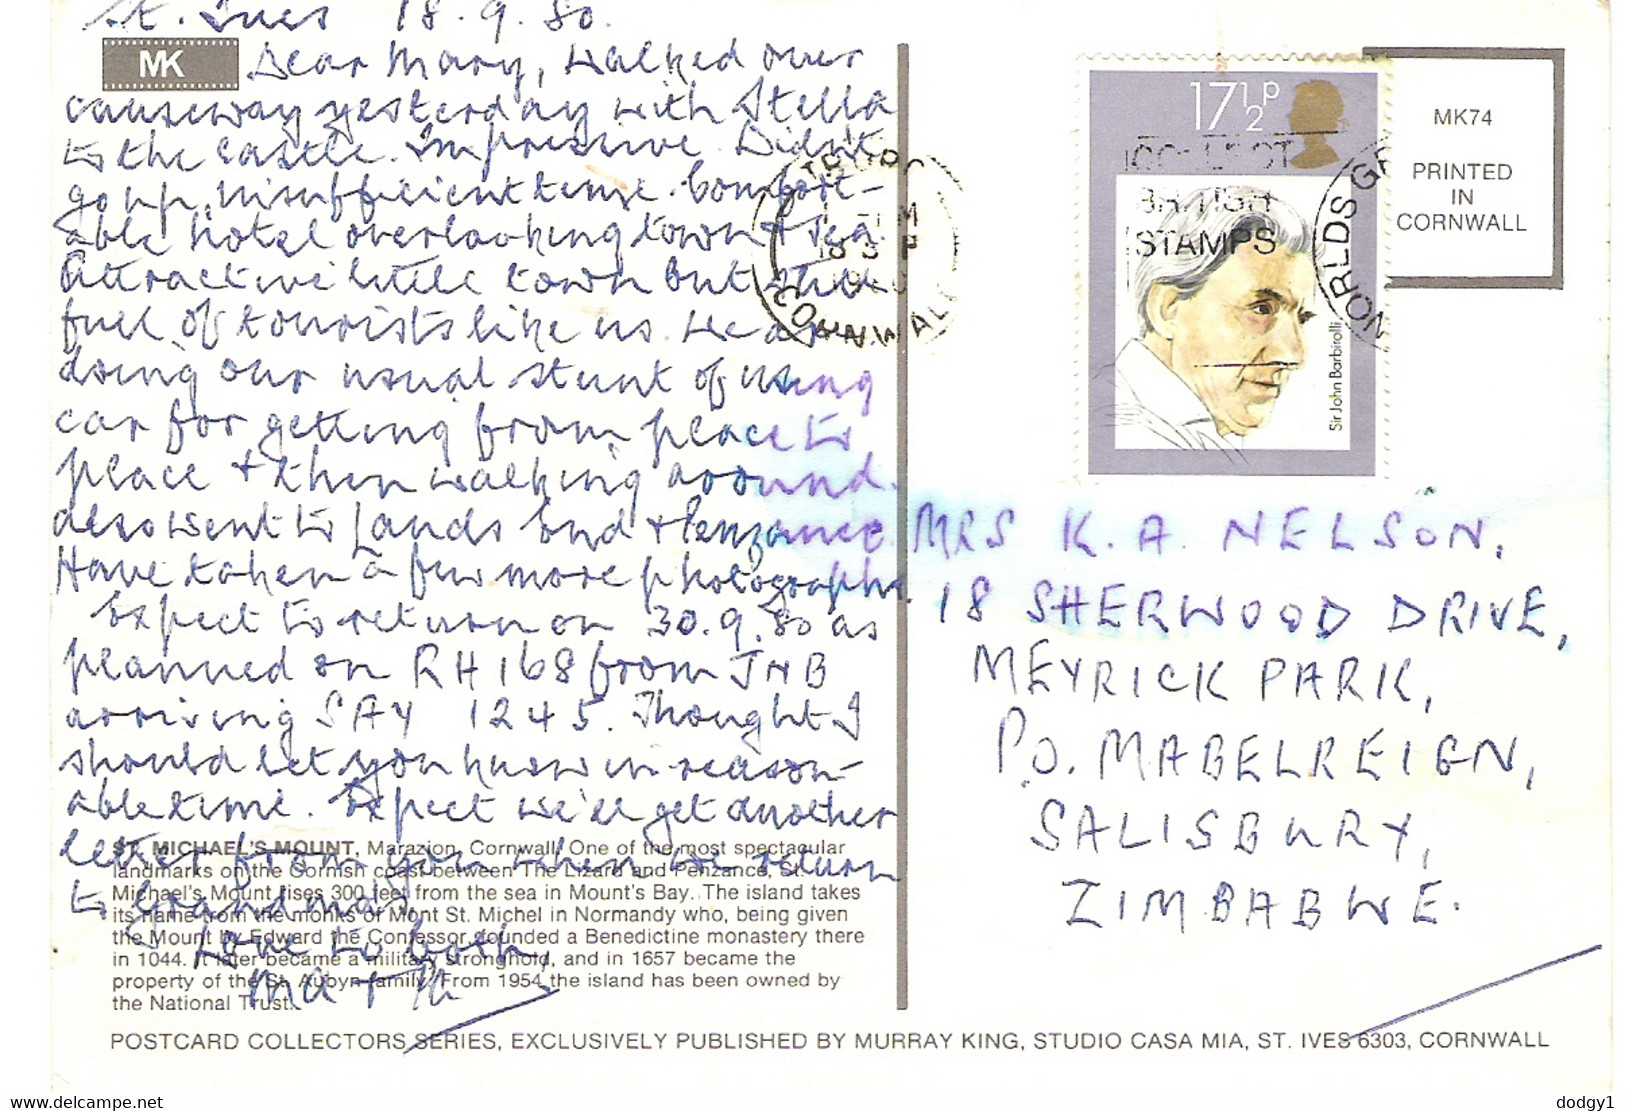 St. Ives 18.9.80.
MK
Dear Mary, Walked over
causeway yesterday with Stella
to the castle. Impressive. Didn't
go up, insufficient time. Comfort-
able hotel overlooking town + sea.
Attractive little town but still
full of tourists like us. We are
doing our usual stunt of using
car for getting from place to
place + then walking around.
Also went to Lands End + Penzance.
Have taken a few more photographs.
Expect to return on 30.9.80 as
planned on RH168 from JNB
arriving SAY 1245. Thought I
should let you know in reason-
able time. Expect we'll get another
letter from you when we return
to Grandma's.
Love to both,
Ma +
ST. MICHAEL'S MOUNT, Marazion, Cornwall. One of the most spectacular
landmarks on the Cornish coast between The Lizard and Penzance, St.
Michael's Mount rises 300 feet from the sea in Mount's Bay. The island takes
its name from the monks of Mont St. Michel in Normandy who, being given
the Mount by Edward the Confessor founded a Benedictine monastery there
in 1044. It later became a military stronghold, and in 1657 became the
property of the St. Aubyn family. From 1954 the island has been owned by
the National Trust.
17½p
Sir John Barbirolli
BRITISH
STAMPS
CORNWALL
MK74
PRINTED
IN
CORNWALL
MRS K. A. NELSON,
18 SHERWOOD DRIVE,
MEYRICK PARK,
P.O. MABELREIGN,
SALISBURY,
ZIMBABWE.
POSTCARD COLLECTORS SERIES, EXCLUSIVELY PUBLISHED BY MURRAY KING, STUDIO CASA MIA, ST. IVES 6303, CORNWALL
www.delcampe.net
dodgy1